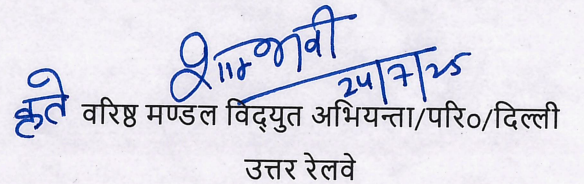 शाम्भवी
24/7/25
कृते वरिष्ठ मण्डल विद्युत अभियन्ता/परि०/दिल्ली
उत्तर रेलवे